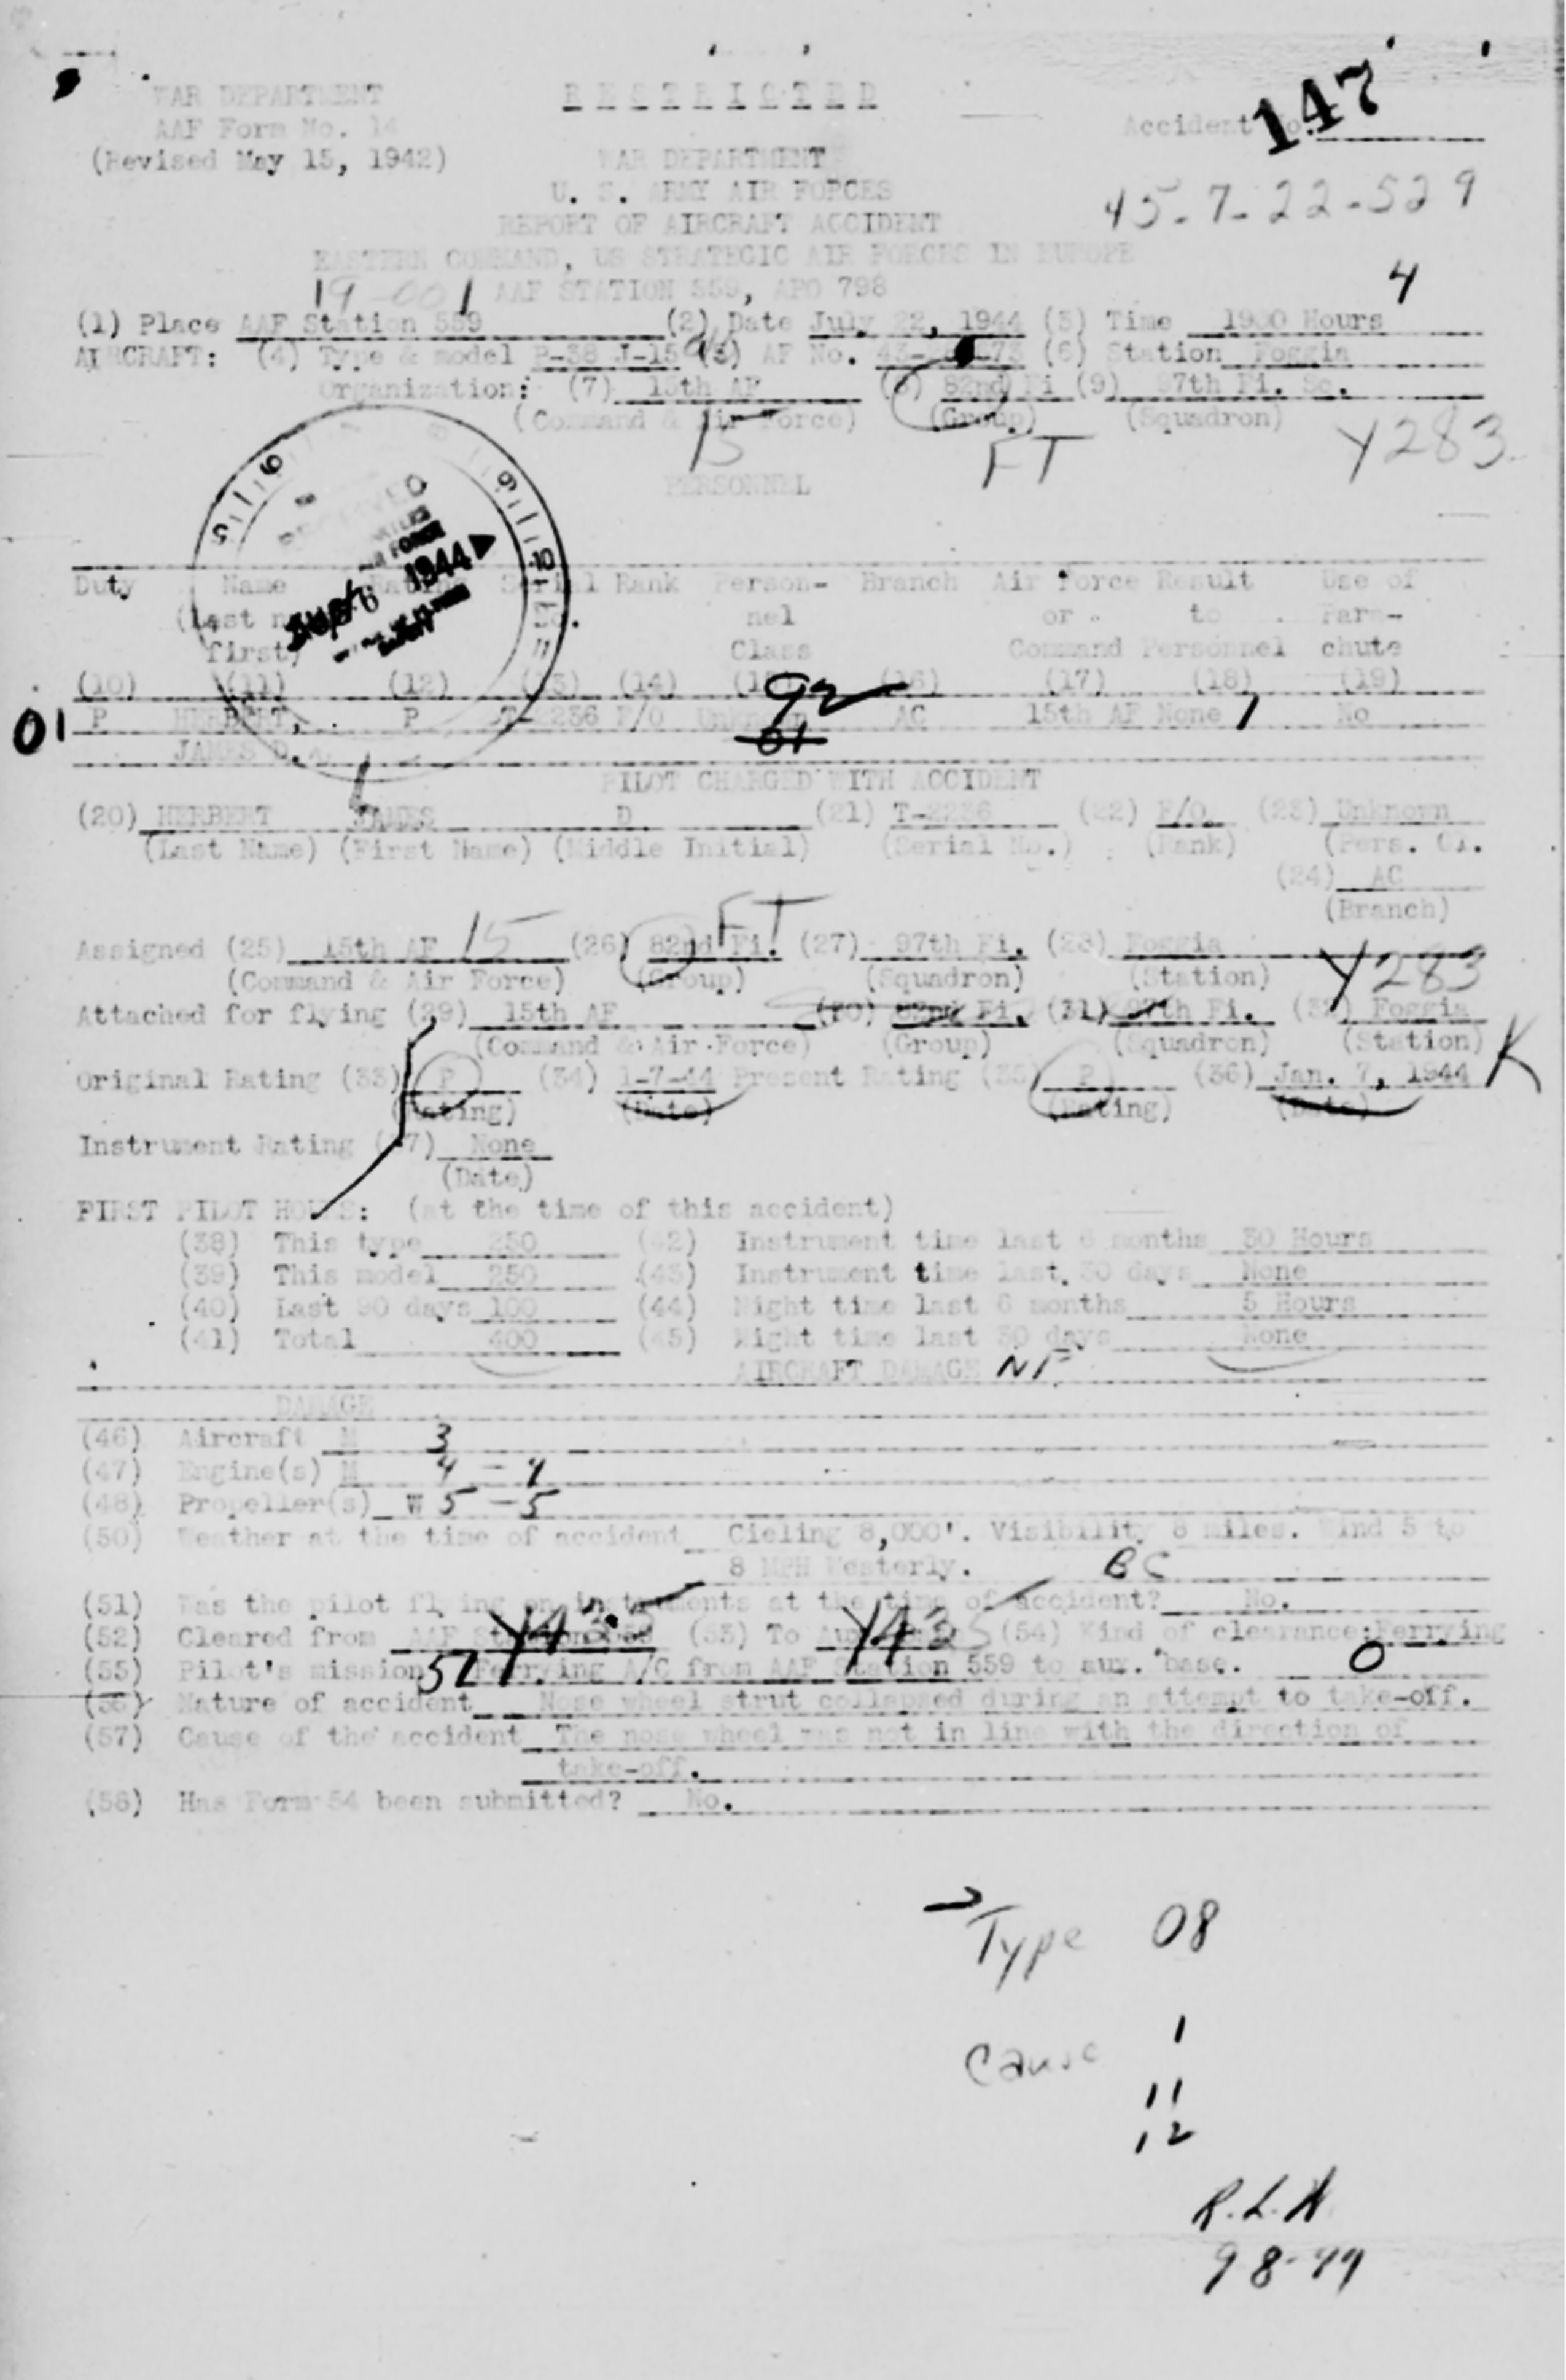 147
WAR DEPARTMENT RESTRICTED
AAF Form No. 14 Accident No.
(Revised May 15, 1942) WAR DEPARTMENT
U. S. ARMY AIR FORCES 45-7-22-529
REPORT OF AIRCRAFT ACCIDENT
EASTERN COMMAND, US STRATEGIC AIR FORCES IN EUROPE
19-001 AAF STATION 559, APO 798 4
(1) Place AAF Station 559 (2) Date July 22, 1944 (3) Time 1900 Hours
AIRCRAFT: (4) Type & model P-38 J-15 (5) AF No. 43- (6) Station Foggia
Organization: (7) 15th AF (8) 82nd Fi (9) 97th Fi. Sq.
(Command & Air Force) (Group) (Squadron)
15 FT Y283
PERSONNEL
Duty Name Rating Serial Rank Person- Branch Air Force Result Use of
(Last no. nel or to Para-
first) Class Command Personnel chute
(10) (11) (12) (13) (14) (15) (16) (17) (18) (19)
01 P HERBERT, P F/O Unknown AC 15th AF None 1 No
JAMES D. 01
PILOT CHARGED WITH ACCIDENT
(20) HERBERT JAMES D (21) T-2236 (22) F/O (23) Unknown
(Last Name) (First Name) (Middle Initial) (Serial No.) (Rank) (Pers. Cl.
(24) AC
(Branch)
FT
Assigned (25) 15th AF 15 (26) 82nd Fi. (27) 97th Fi. (28) Foggia
(Command & Air Force) (Group) (Squadron) (Station) Y283
Attached for flying (29) 15th AF (30) 82nd Fi. (31) 97th Fi. (32) Foggia
(Command & Air Force) (Group) (Squadron) (Station) K
Original Rating (33) P (34) 1-7-44 Present Rating (35) P (36) Jan. 7, 1944
(Rating) (Date) (Rating) (Date)
Instrument Rating (37) None
(Date)
FIRST PILOT HOURS: (at the time of this accident)
(38) This type 250 (42) Instrument time last 6 months 30 Hours
(39) This model 250 (43) Instrument time last 30 days None
(40) Last 90 days 100 (44) Night time last 6 months 5 Hours
(41) Total 400 (45) Night time last 30 days None
AIRCRAFT DAMAGE NF
DAMAGE
(46) Aircraft M 3
(47) Engine(s) M 4 - 4
(48) Propeller(s) W 5 - 5
(50) Weather at the time of accident Cieling 8,000'. Visibility 8 miles. Wind 5 to
8 MPH Westerly. BC
(51) Was the pilot flying on instruments at the time of accident? No.
(52) Cleared from AAF Station 559 (53) To (54) Kind of clearance: Ferrying
(55) Pilot's mission 52 Ferrying A/C from AAF Station 559 to aux. base. 0
(56) Nature of accident Nose wheel strut collapsed during an attempt to take-off.
(57) Cause of the accident The nose wheel was not in line with the direction of
take-off.
(58) Has Form 54 been submitted? No.
Type 08
Cause 1
11
12
R.L.H
9 8-44